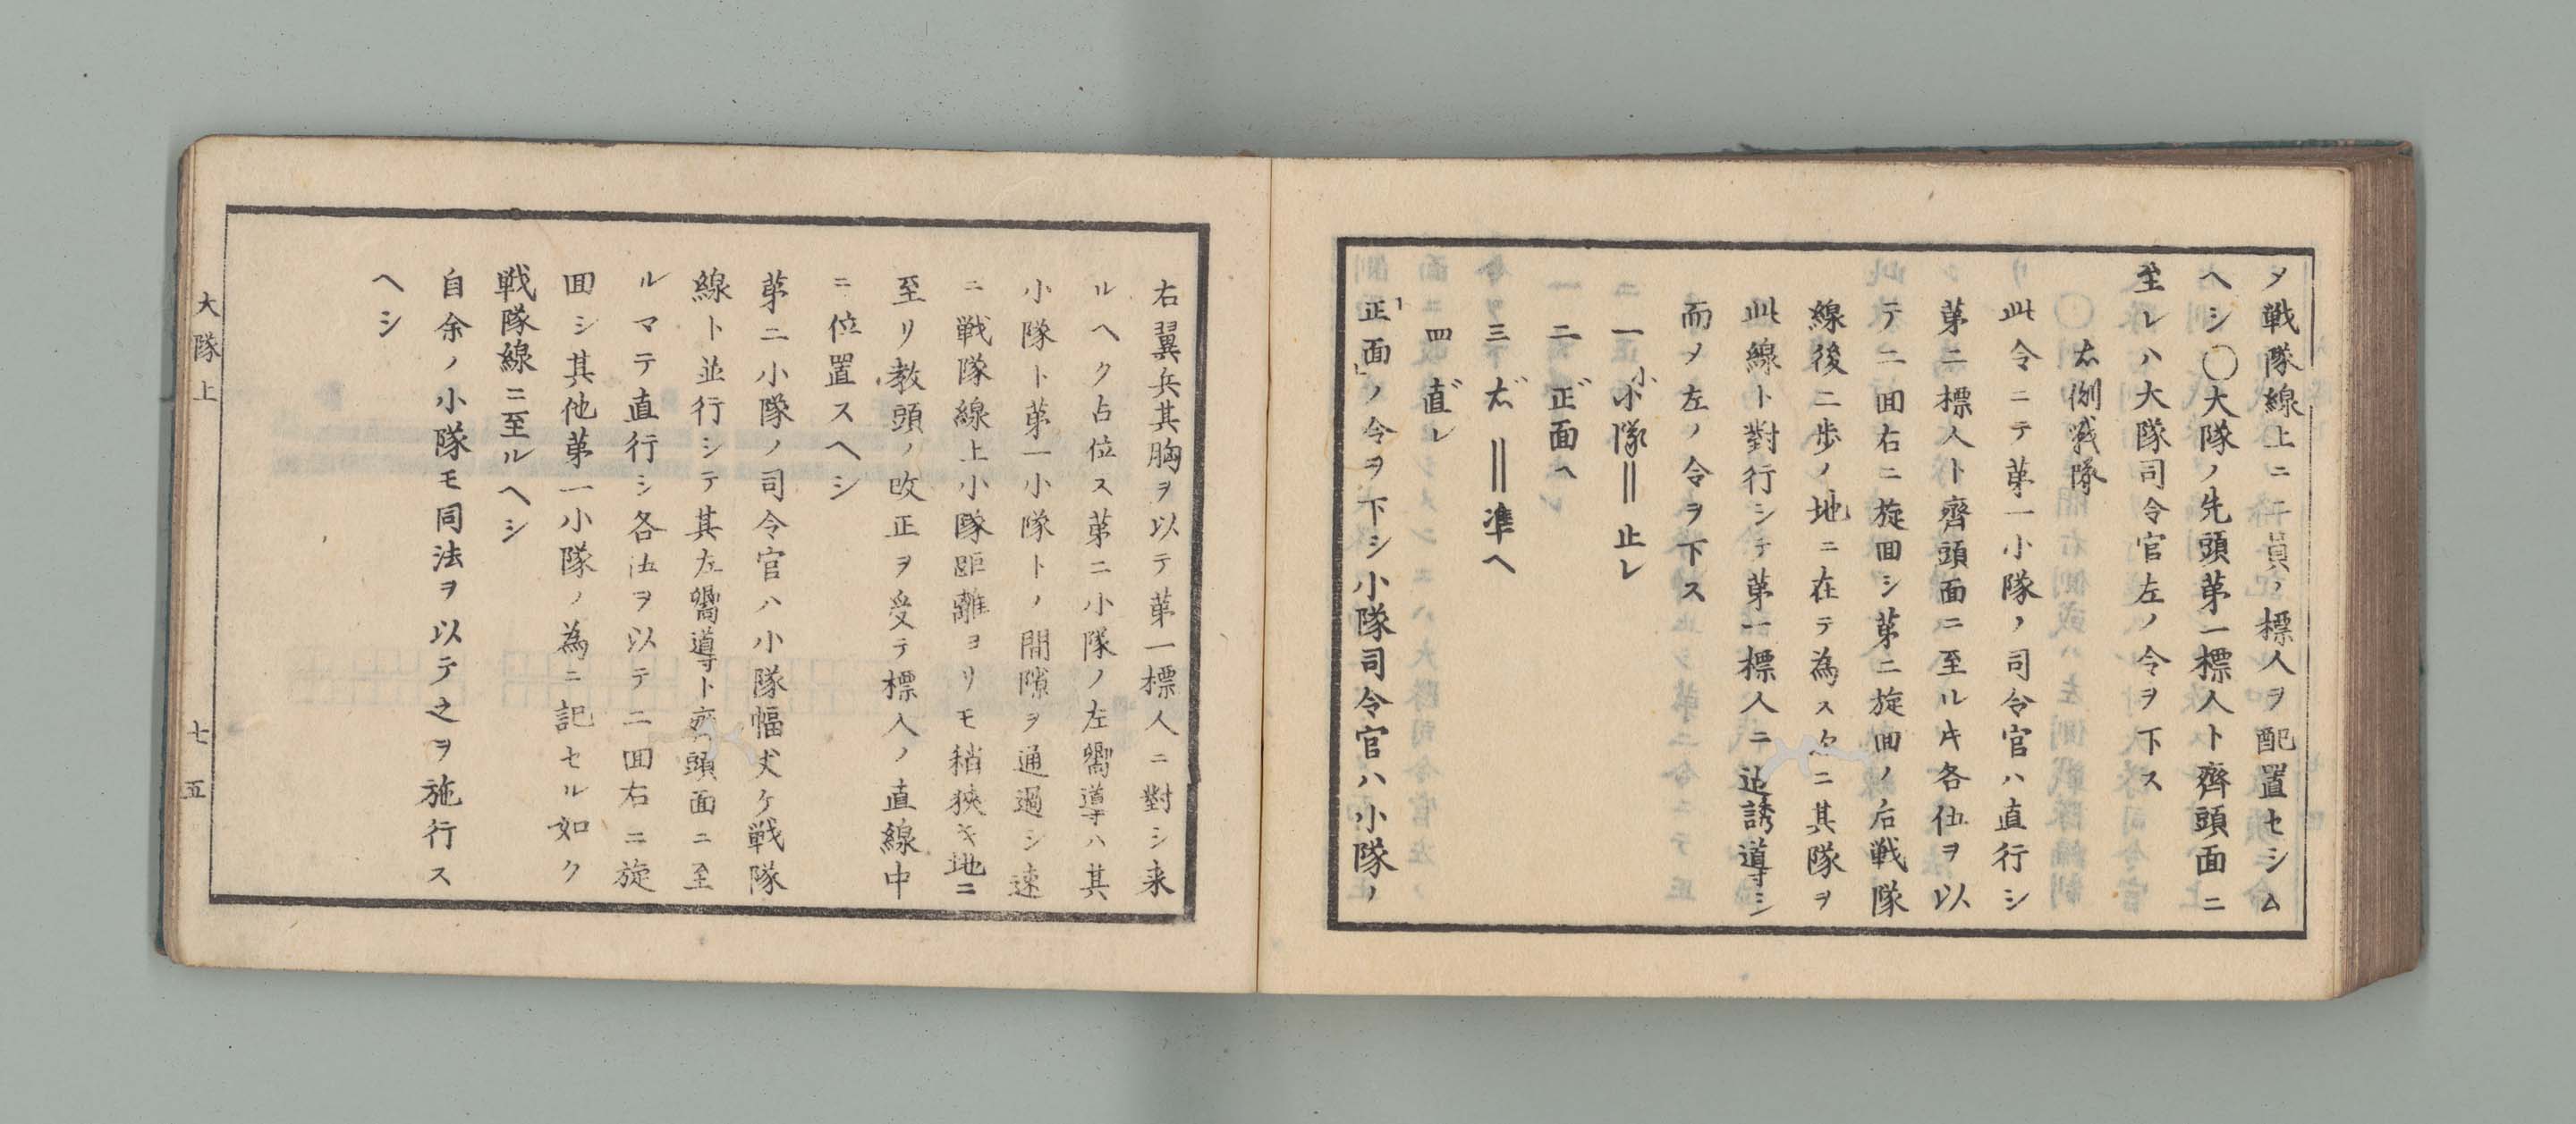 メ戦隊線上ニ二員ノ標人ヲ配置セシム
ヘシ〇大隊ノ先頭第一標人ト齊頭面ニ
至レハ大隊司令官左ノ令ヲ下ス
右側戦隊
此令ニテ第一小隊ノ司令官ハ直行シ
第二標人ト齊頭面ニ至ルキ各伍ヲ以
テ二回右ニ旋回シ第二旋回ノ后戦隊
線後二歩ノ地ニ在テ為スタニ其隊ヲ
此線ト對行シテ第一標人ニ迠誘導シ
而メ左ノ令ヲ下ス
一 小隊‖止レ
二 正面ヘ
三 右‖準ヘ
四 直レ
「正面」ノ令ヲ下シ小隊司令官ハ小隊ノ
右翼兵其胸ヲ以テ第一標人ニ對シ来
ルヘク占位ス第二小隊ノ左嚮導ハ其
小隊ト第一小隊トノ間隙ヲ通過シ速
ニ戦隊線上小隊距離ヨリモ稍狹キ地ニ
至リ教頭ノ改正ヲ受テ標人ノ直線中
ニ位置スヘシ
第二小隊ノ司令官ハ小隊幅丈ケ戦隊
線ト並行シテ其左嚮導ト齊頭面ニ至
ルマテ直行シ各伍ヲ以テ二回右ニ旋
回シ其他第一小隊ノ為ニ記セル如ク
戦隊線ニ至ルヘシ
自余ノ小隊モ同法ヲ以テ之ヲ施行ス
ヘシ
大隊上
七五